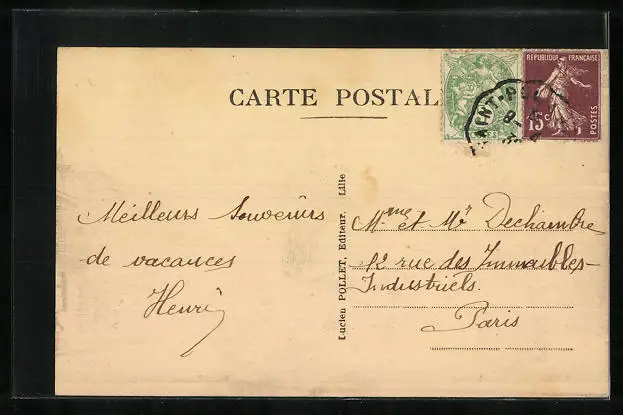 CARTE POSTALE
RÉPUBLIQUE FRANÇAISE
15c
POSTES
Meilleurs Souvenirs
de vacances
Henri
Lucien POLLET, Editeur. Lille
Mme et Mr Dechambre
12 rue des Immeubles-
Industriels.
Paris